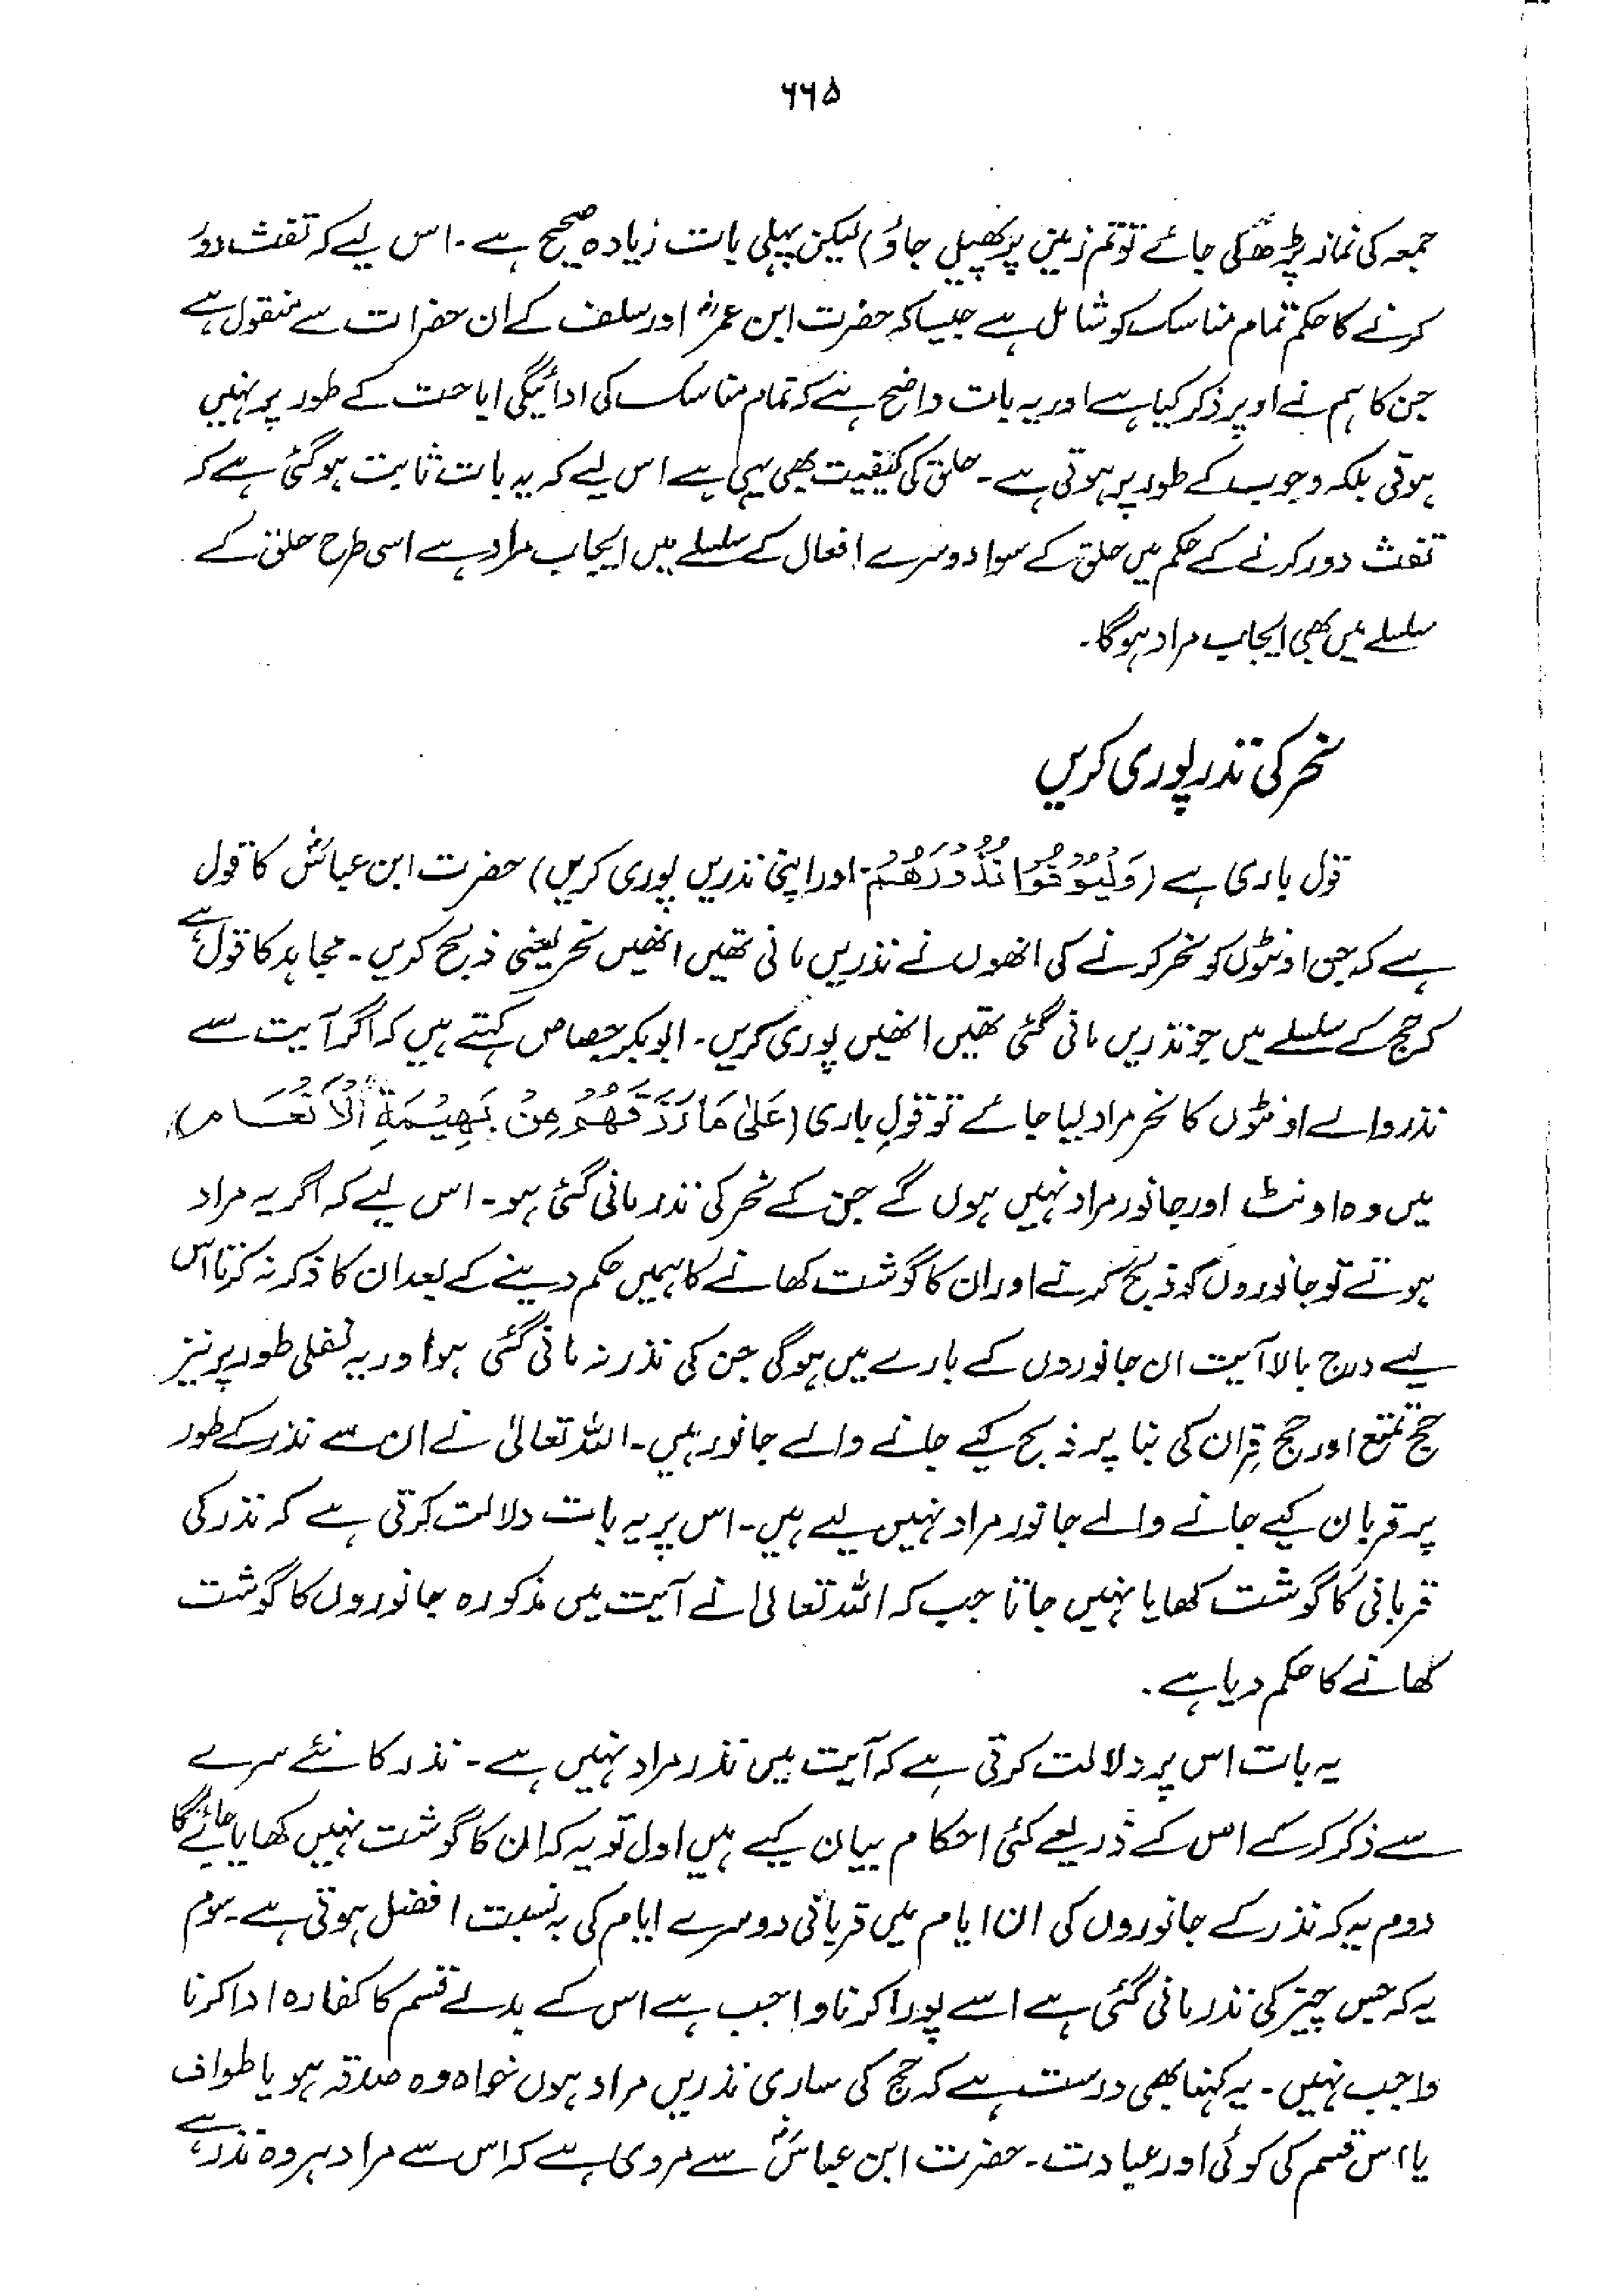 ۶۶۵
جمعہ کی نماز پڑھ لی جائے تو تم زمین پر پھیل جاؤ) لیکن پہلی بات زیادہ صحیح ہے۔ اس لیے کہ تفث دور
کرنے کا حکم تمام مناسک کو شامل ہے جیسا کہ حضرت ابن عمرؓ اور سلف کے ان حضرات سے منقول ہے
جن کا ہم نے اوپر ذکر کیا ہے اور یہ بات واضح ہے کہ تمام مناسک کی ادائیگی اباحت کے طور پر نہیں
ہوتی بلکہ وجوب کے طور پر ہوتی ہے۔ حلق کی کیفیت بھی یہی ہے اس لیے کہ یہ بات ثابت ہو گئی ہے کہ
تفث دور کرنے کے حکم میں حلق کے سوا دوسرے افعال کے سلسلے میں ایجاب مراد ہے اسی طرح حلق کے
سلسلے میں بھی ایجاب مراد ہوگا۔
نحر کی نذر پوری کریں
قول باری ہے (وَلْيُوْفُوْا نُذُوْرَهُمْ۔ اور اپنی نذریں پوری کریں) حضرت ابن عباسؓ کا قول
ہے کہ جن اونٹوں کو نحر کرنے کی انھوں نے نذریں مانی تھیں انھیں نحر یعنی ذبح کریں۔ مجاہد کا قول ہے
کہ حج کے سلسلے میں جو نذریں مانی گئی تھیں انھیں پوری کریں۔ ابوبکر جصاص کہتے ہیں کہ اگر آیت سے
نذر والے اونٹوں کا نحر مراد لیا جائے تو قولِ باری (عَلٰى مَا رَزَقَهُمْ مِنْ بَهِيْمَةِ الْاَنْعَامِ)
میں وہ اونٹ اور جانور مراد نہیں ہوں گے جن کے نحر کی نذر مانی گئی ہو۔ اس لیے کہ اگر یہ مراد
ہوتے تو جانوروں کو ذبح کرتے اور ان کا گوشت کھانے کا ہمیں حکم دینے کے بعد ان کا ذکر نہ کرتا اس
لیے درج بالا آیت ان جانوروں کے بارے میں ہوگی جن کی نذر نہ مانی گئی ہو اور یہ نفلی طور پر نیز
حج تمتع اور حج قِران کی بنا پر ذبح کیے جانے والے جانور ہیں۔ اللہ تعالیٰ نے ان سے نذر کے طور
پر قربان کیے جانے والے جانور مراد نہیں لیے ہیں۔ اس پر یہ بات دلالت کرتی ہے کہ نذر کی
قربانی کا گوشت کھایا نہیں جاتا جب کہ اللہ تعالیٰ نے آیت میں مذکورہ جانوروں کا گوشت
کھانے کا حکم دیا ہے۔
یہ بات اس پر دلالت کرتی ہے کہ آیت میں نذر مراد نہیں ہے۔ نذر کا نئے سرے
سے ذکر کر کے اس کے ذریعے کئی احکام بیان کیے ہیں اول تو یہ کہ ان کا گوشت نہیں کھایا جائے گا
دوم یہ کہ نذر کے جانوروں کی ان ایام میں قربانی دوسرے ایام کی بہ نسبت افضل ہوتی ہے۔ سوم
یہ کہ جس چیز کی نذر مانی گئی ہے اسے پورا کرنا واجب ہے اس کے بدلے قسم کا کفارہ ادا کرنا
واجب نہیں۔ یہ کہنا بھی درست ہے کہ حج کی ساری نذریں مراد ہوں خواہ وہ صدقہ ہو یا طواف
یا اس قسم کی کوئی اور عبادت۔ حضرت ابن عباسؓ سے مروی ہے کہ اس سے مراد ہر وہ نذر ہے